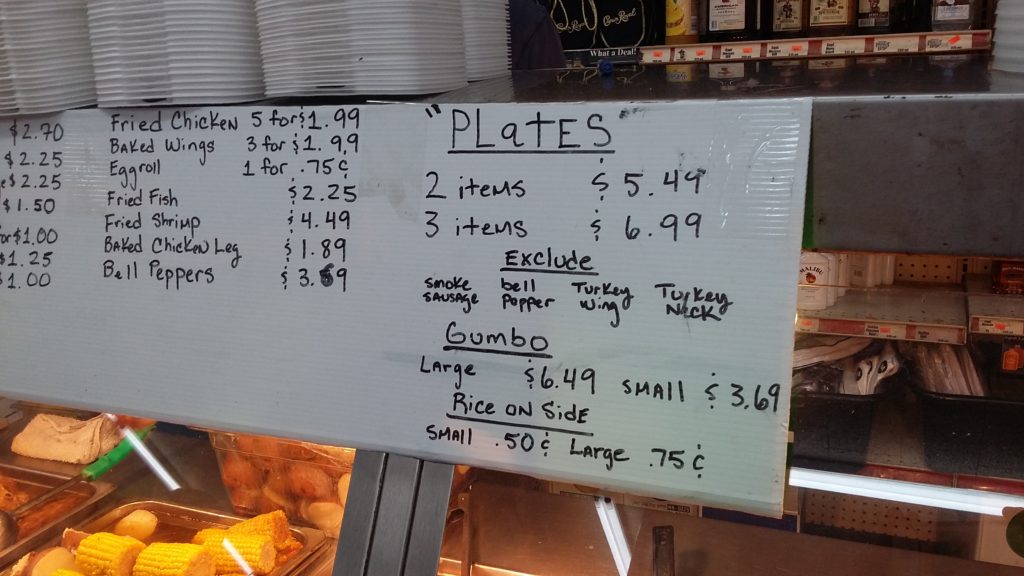 What a Deal!
$2.70
$2.25
$2.25
$1.50
$1.00
$1.25
$1.00
Fried Chicken 5 for $1.99
Baked Wings 3 for $1.99
Eggroll 1 for .75¢
Fried Fish $2.25
Fried Shrimp $4.49
Baked Chicken Leg $1.89
Bell Peppers
"PLatES"
2 items $5.49
3 items $6.99
Exclude
smoke sausage bell Pepper Turkey wing Turkey Neck
Gumbo
Large $6.49 small $3.69
Rice on Side
small .50¢ Large .75¢
MALIBU